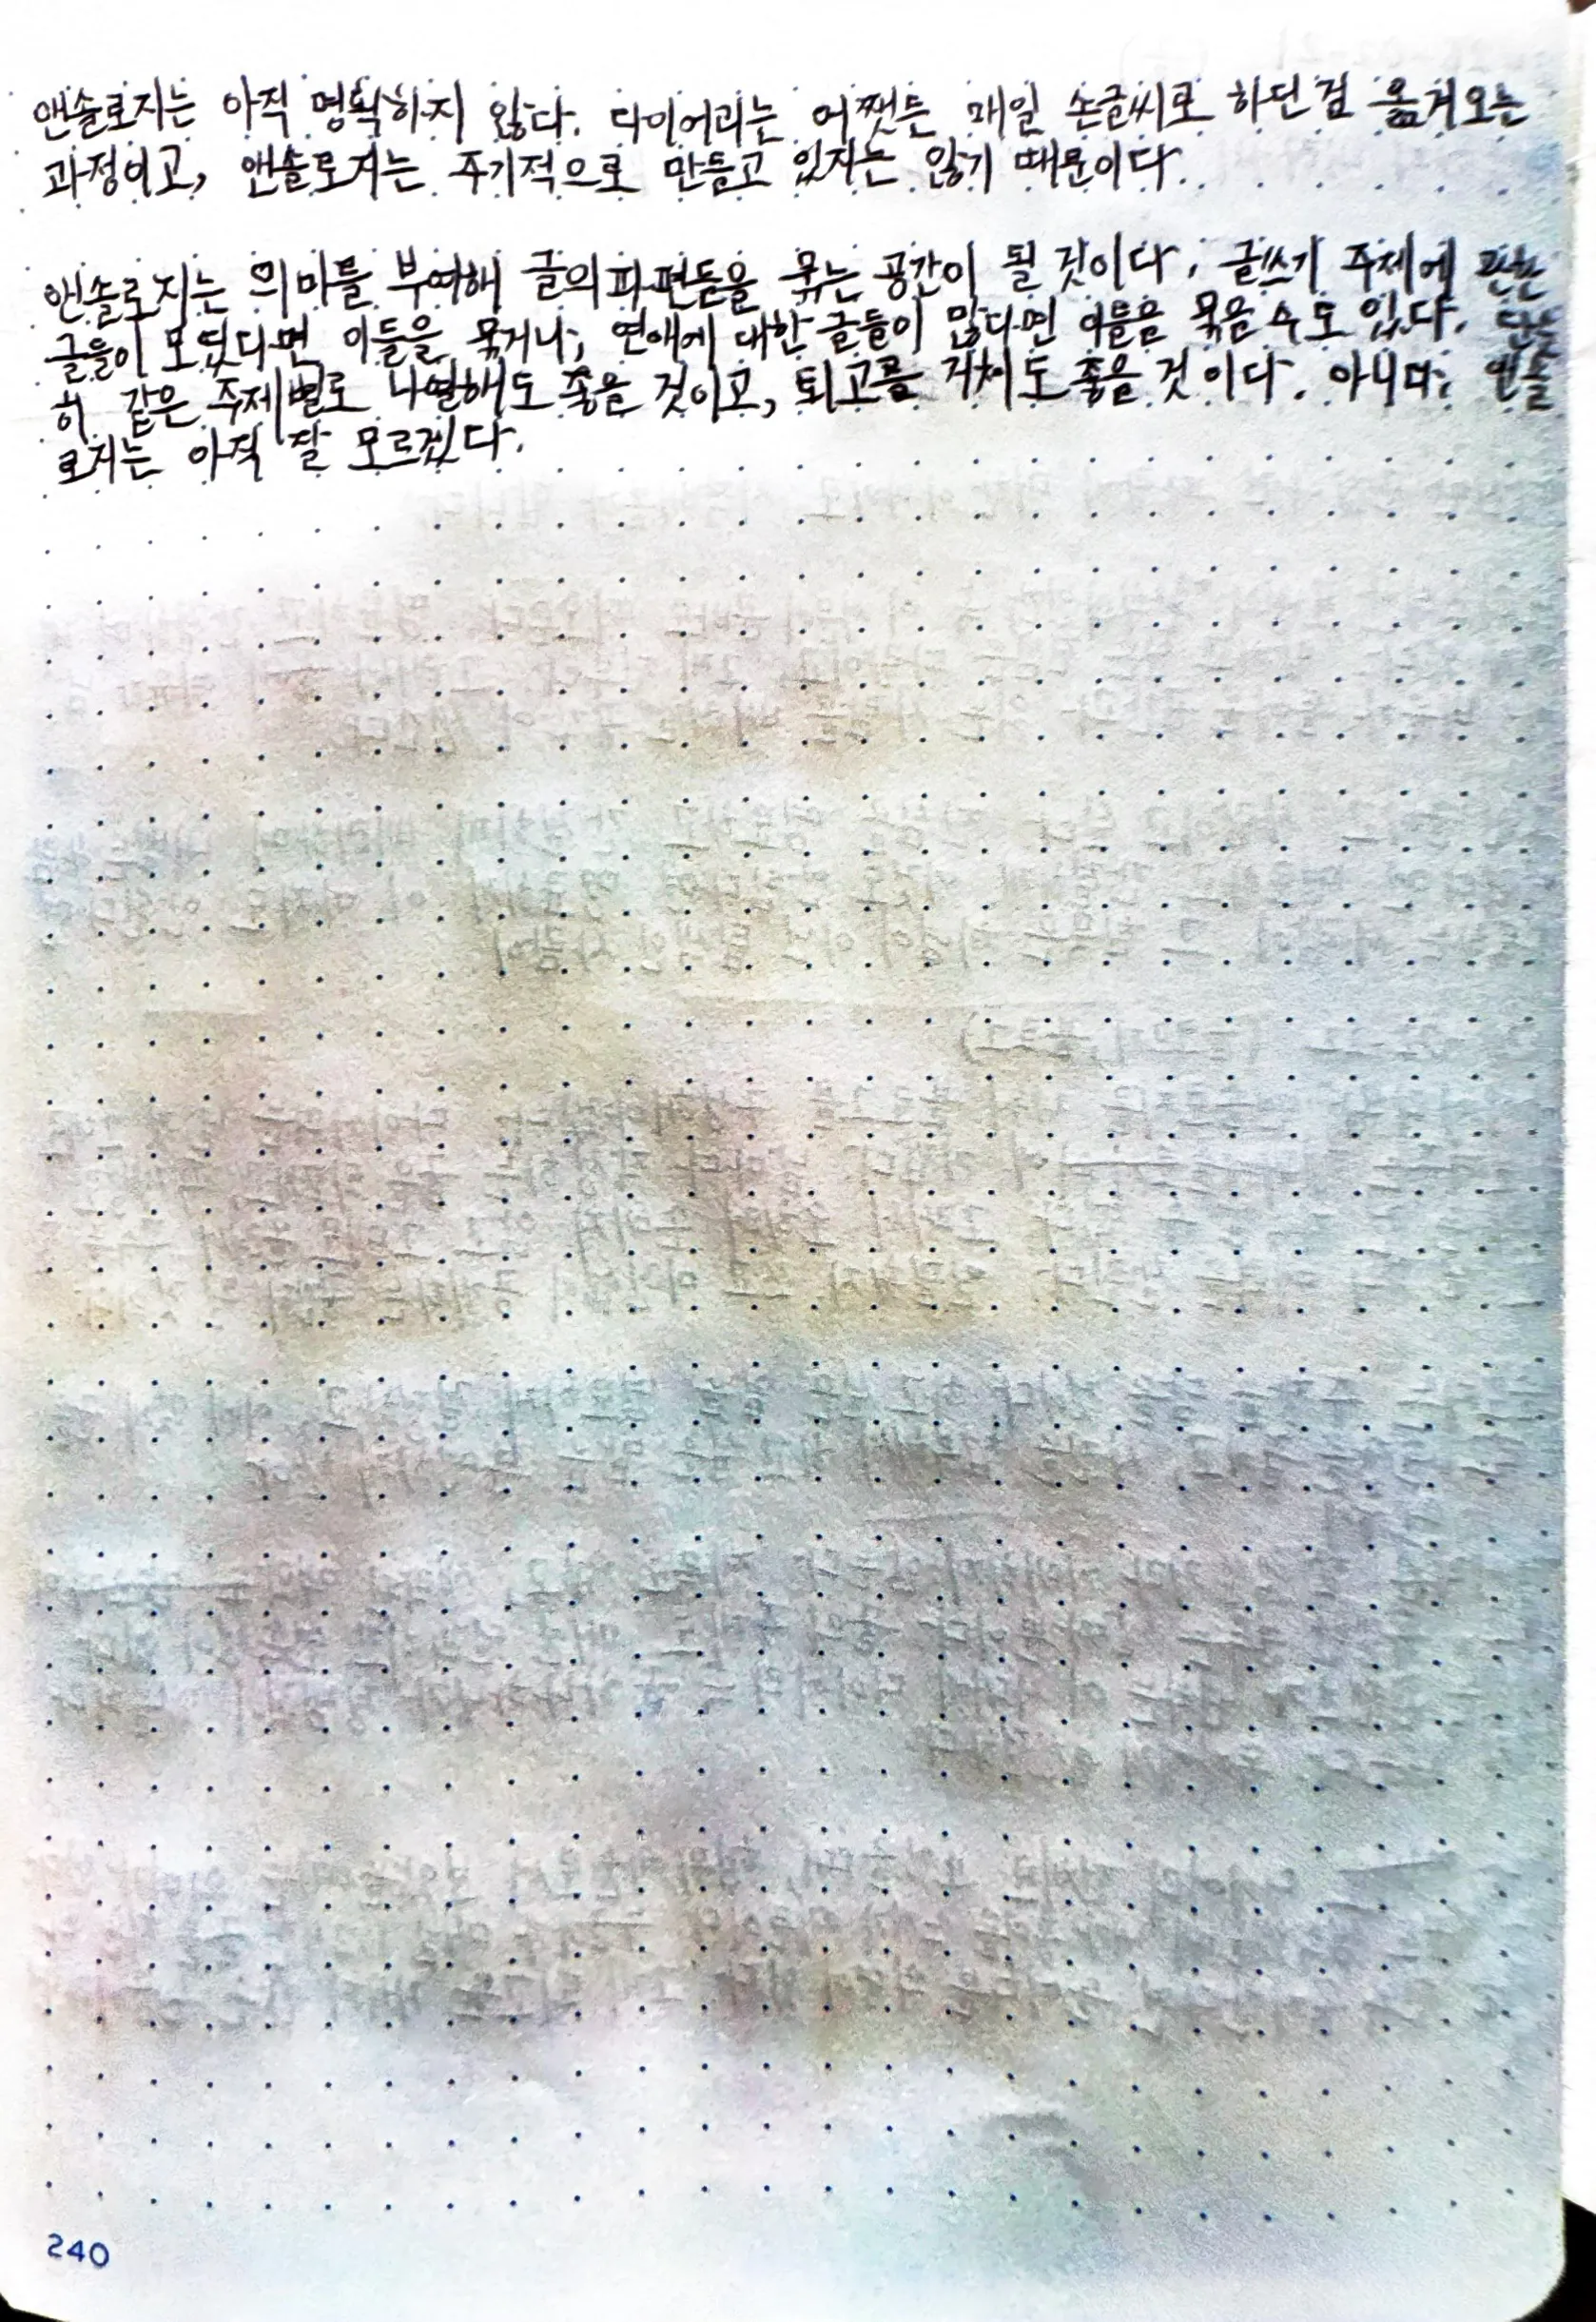 앤솔로지는 아직 명확하지 않다. 다이어리는 어쨋든 매일 손글씨로 하던걸 옮겨오는
과정이고, 앤솔로지는 주기적으로 만들고 있지는 않기 때문이다.
앤솔로지는 의미를 부여해 글의 파편들을 묶는 공간이 될 것이다. 글쓰기 주제에 관한
글들이 모였다면 이들을 묶거나, 연애에 대한 글들이 많다면 이들을 묶을 수도 있다. 단순
히 같은 주제별로 나열해도 좋을 것이고, 퇴고를 거쳐도 좋을 것이다. 아니다. 앤솔
로지는 아직 잘 모르겠다.
240